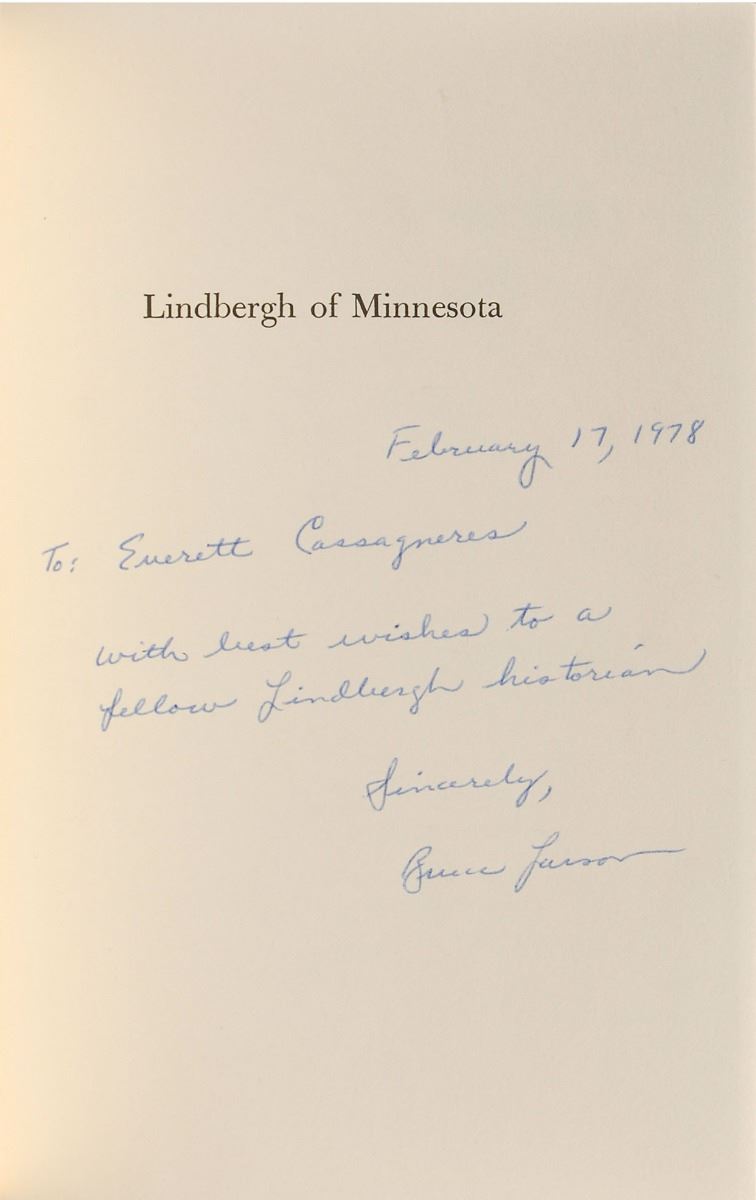 Lindbergh of Minnesota
February 17, 1978
To: Everett Cassagneres
with best wishes to a
fellow Lindbergh historian
Sincerely,
Bruce Larson